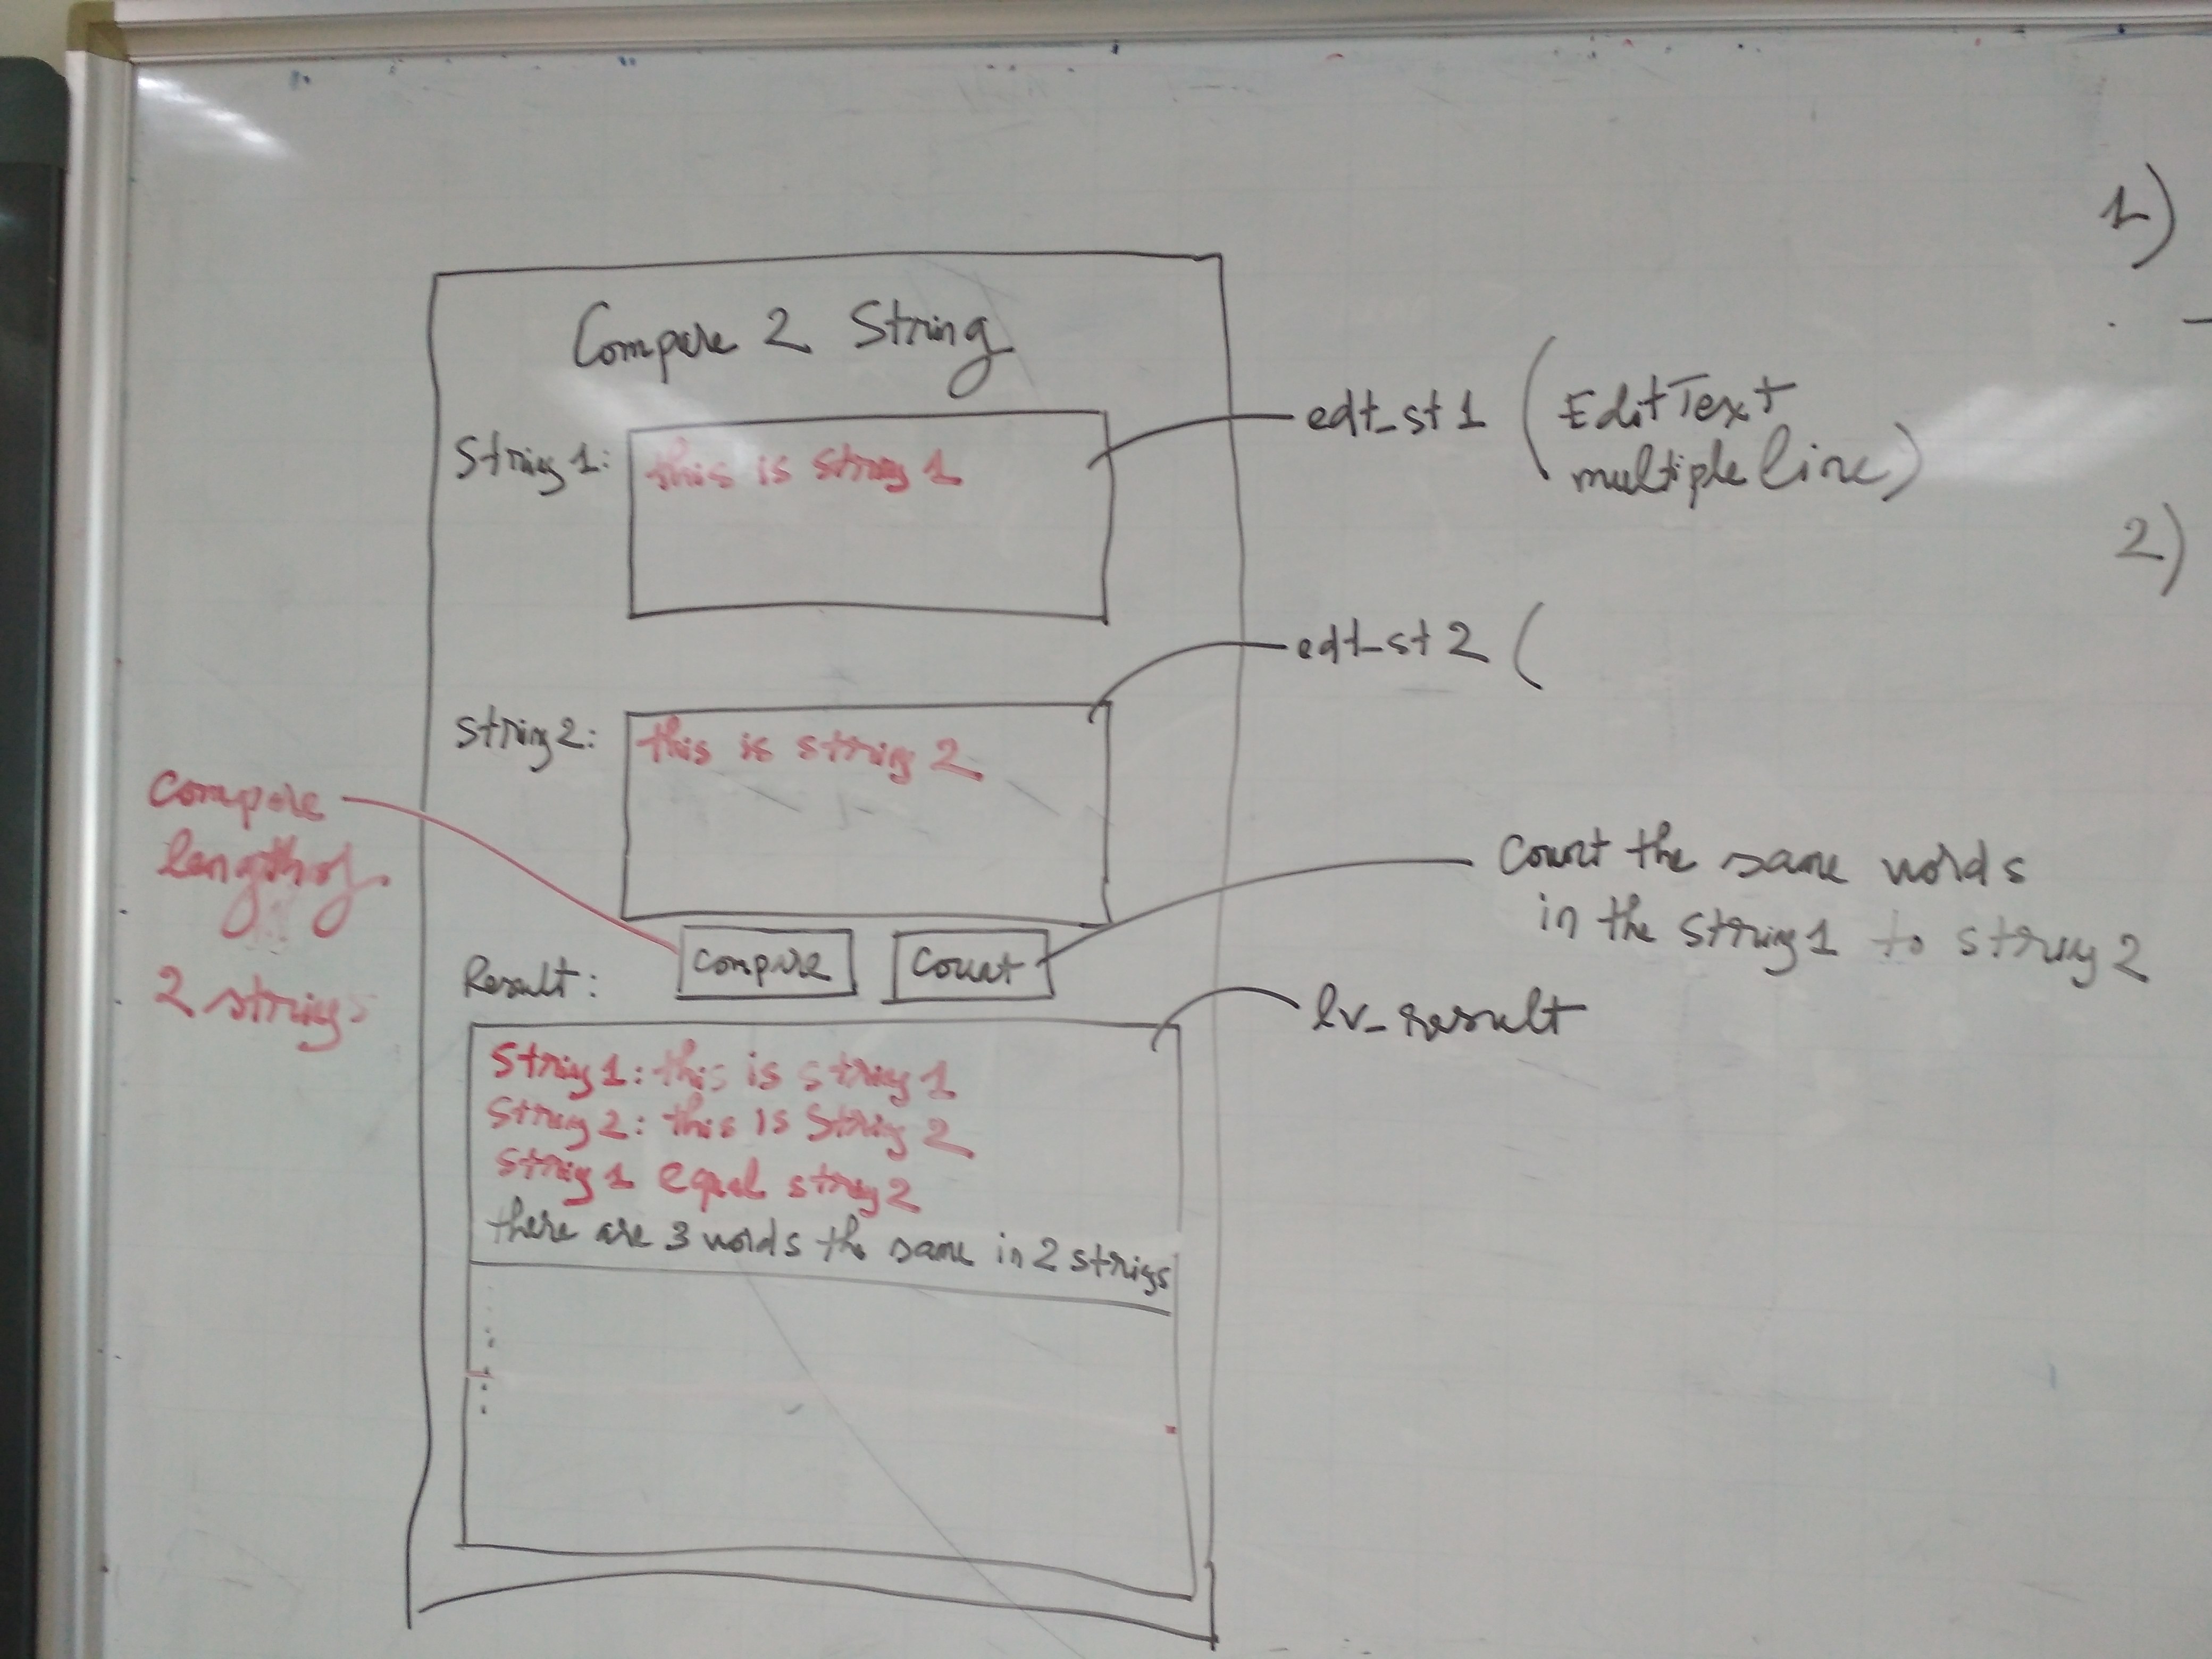 1)
Compare 2 String
String 1:
this is string 1
edt_st1 (EditText
multiple line)
2)
edt_st2 (
string 2:
this is string 2
compare
length of
2 strings
Count the same words
in the string 1 to string 2
compare
Count
Result:
lv_result
String 1: this is string 1
String 2: this is String 2
String 1 equal string 2
there are 3 words the same in 2 strings